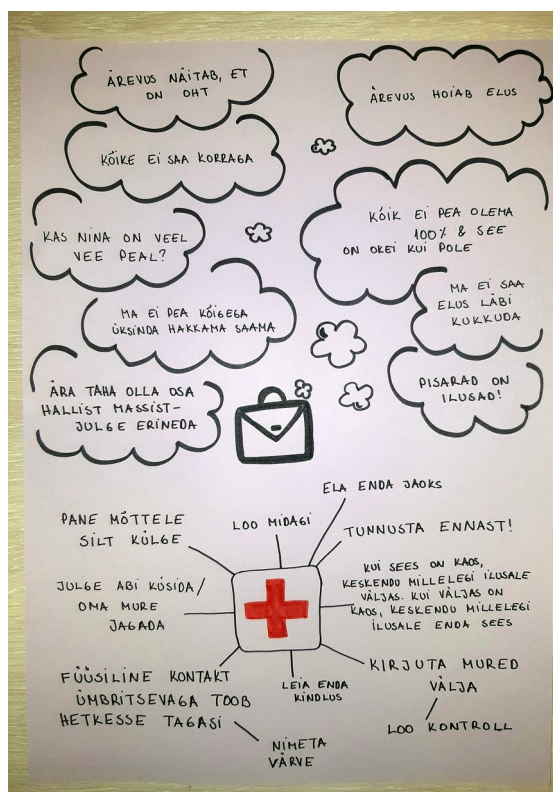 ÄREVUS NÄITAB, ET
ON OHT
ÄREVUS HOIAB ELUS
KÕIKE EI SAA KORRAGA
KAS NINA ON VEEL
VEE PEAL?
KÕIK EI PEA OLEMA
100% & SEE
ON OKEI KUI POLE
MA EI PEA KÕIGEGA
ÜKSINDA HAKKAMA SAAMA
MA EI SAA
ELUS LÄBI
KUKKUDA
ÄRA TAHA OLLA OSA
HALLIST MASSIST-
JULGE ERINEDA
PISARAD ON
ILUSAD!
ELA ENDA JAOKS
PANE MÕTTELE
SILT KÜLGE
LOO MIDAGI
TUNNUSTA ENNAST!
JULGE ABI KÜSIDA/
OMA MURE
JAGADA
KUI SEES ON KAOS,
KESKENDU MILLELEGI ILUSALE
VÄLJAS. KUI VÄLJAS ON
KAOS, KESKENDU MILLELEGI
ILUSALE ENDA SEES
FÜÜSILINE KONTAKT
ÜMBRITSEVAGA TOOB
HETKESSE TAGASI
LEIA ENDA
KINDLUS
KIRJUTA MURED
VÄLJA
LOO KONTROLL
NIMETA
VÄRVE